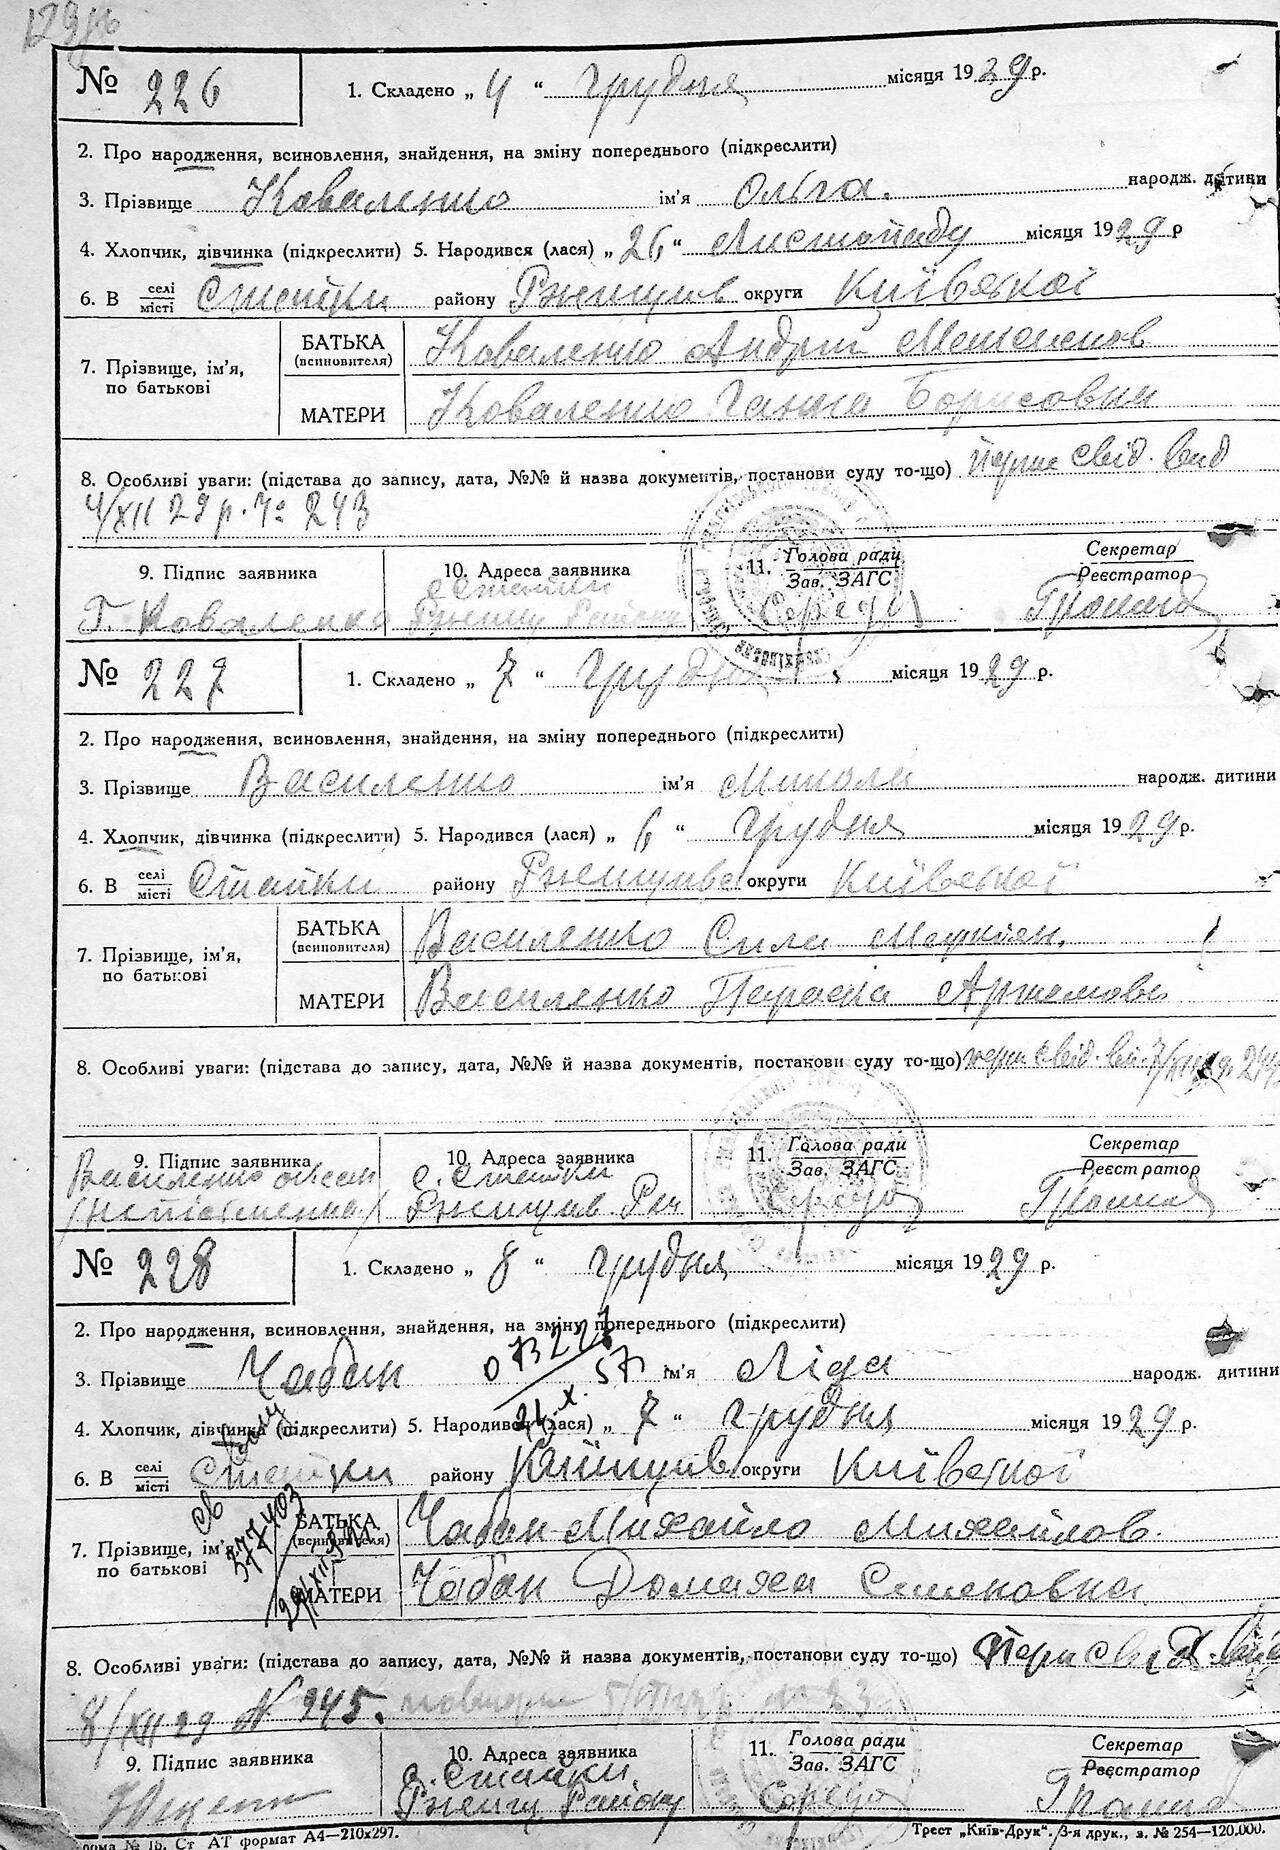 № 226
1. Складено „ 4 “ Грудня місяця 1929 р.
2. Про народження, всиновлення, знайдення, на зміну попереднього (підкреслити)
3. Прізвище Коваленко ім'я Ольга. народж. дитини
4. Хлопчик, дівчинка (підкреслити) 5. Народився (лася) „ 26 “ Листопаду місяця 1929 р
6. В селі місті Стайки району Ржищів округи Київської
7. Прізвище, ім'я, по батькові
БАТЬКА (всиновителя) Коваленко Андрій
МАТЕРИ Коваленко Ганна Борисовна
8. Особливі уваги: (підстава до запису, дата, №№ й назва документів, постанови суду то-що) перше свід. вид
4/XII 29 р. № 243
9. Підпис заявника 10. Адреса заявника 11. Голова ради Зав. ЗАГС Секретар Реєстратор
Г. Коваленко с. Стайки Ржищ Району Середа
№ 227
1. Складено „ 7 “ Грудня місяця 1929 р.
2. Про народження, всиновлення, знайдення, на зміну попереднього (підкреслити)
3. Прізвище Василенко ім'я Микола народж. дитини
4. Хлопчик, дівчинка (підкреслити) 5. Народився (лася) „ 6 “ Грудня місяця 1929 р.
6. В селі місті Стайки району Ржищивс округи Київської
7. Прізвище, ім'я, по батькові
БАТЬКА (всиновителя) Василенко Сила
МАТЕРИ Василенко Параска Артемовн
8. Особливі уваги: (підстава до запису, дата, №№ й назва документів, постанови суду то-що) перш свід. вид. 7/XII
9. Підпис заявника 10. Адреса заявника 11. Голова ради Зав. ЗАГС Секретар Реєстратор
Василенко с. Стайки Середа
(неписьменна) Ржищив. Рай
№ 228
1. Складено „ 8 “ Грудня місяця 1929 р.
2. Про народження, всиновлення, знайдення, на зміну попереднього (підкреслити)
3. Прізвище Чабан ім'я Ліда народж. дитини
4. Хлопчик, дівчинка (підкреслити) 5. Народився (лася) „ 7 “ грудня місяця 1929 р.
6. В селі місті Стайки району округи Київської
7. Прізвище, ім'я, по батькові
БАТЬКА (всиновителя) Чабан Михайло Михайлов.
МАТЕРИ Чабан Домаха Семеновна
8. Особливі уваги: (підстава до запису, дата, №№ й назва документів, постанови суду то-що) Перш свід. вид
8/XII 29 № 245.
9. Підпис заявника 10. Адреса заявника 11. Голова ради Зав. ЗАГС Секретар Реєстратор
с. Стайки
Ржищ Району Середа
орма № 15. Ст АТ формат А4—210х297. Трест „Київ-Друк“. 3-я друк., з. № 254—120.000.